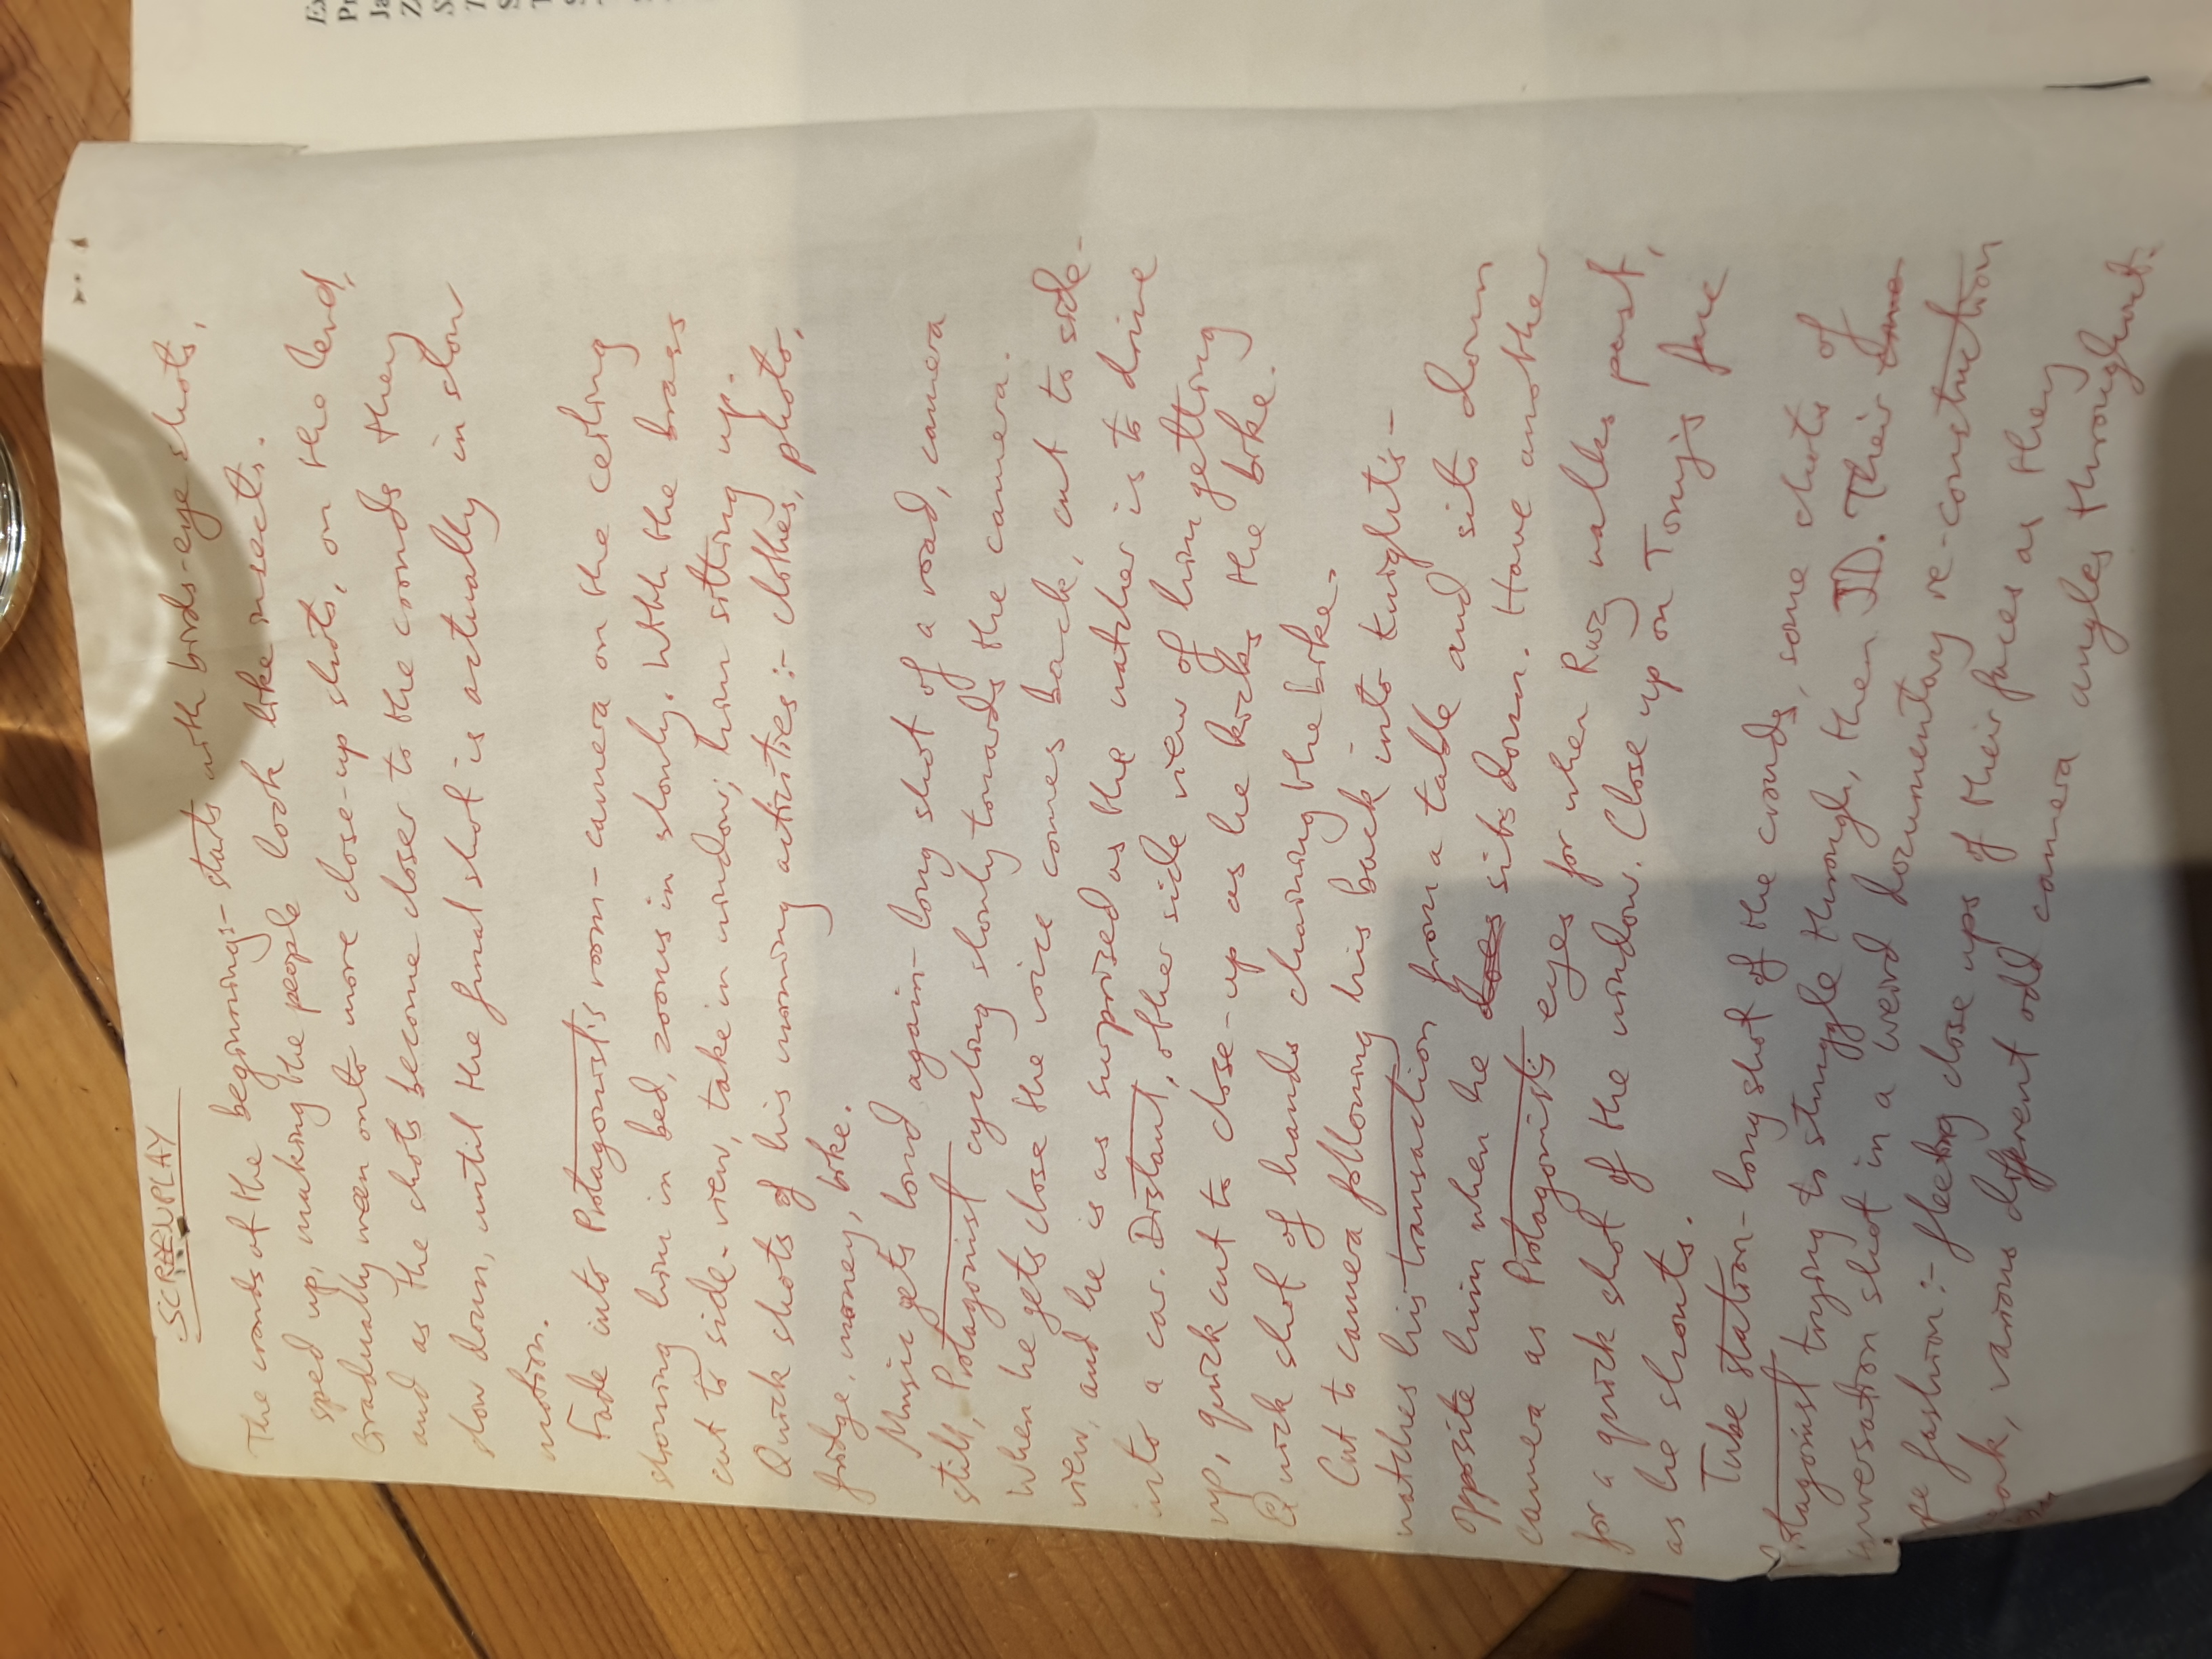 SCREENPLAY
The crowds of the beginning:- starts with birds-eye shots,
sped up, making the people look like insects.
Gradually ween onto more close-up shots, on the level,
and as the shots become closer to the crowds they
slow down, until the final shot is actually in slow
motion.
Fade into Protagonist's room - camera on the ceiling
showing him in bed, zooms in slowly. With the brass
cut to side-view, take in window; him sitting up.
Quick shots of his morning activities:- clothes, photo,
fridge, money, bike.
Music gets loud again - long shot of a road, camera
still, Protagonist cycling slowly towards the camera.
When he gets close the voice comes back, cut to side-
view, and he is as surprised as the watcher is to drive
into a car. Distant, other side view of him getting
up, quick cut to close-up as he kicks the bike.
Quick shot of hands chaining the bike.
Cut to camera following his back into Knight's -
watches his transaction from a table and sits down
opposite him when he does sits down. Have another
camera as Protagonist's eyes for when Ruiz walks past,
for a quick shot of the window. Close up on Tony's face
as he shouts.
Tube station - long shot of the crowds, some shots of
Protagonist trying to struggle through, then JD. Their
conversation shot in a weird documentary re-construction
type fashion:- fleeting close ups of their faces as they
speak, various different odd camera angles throughout.